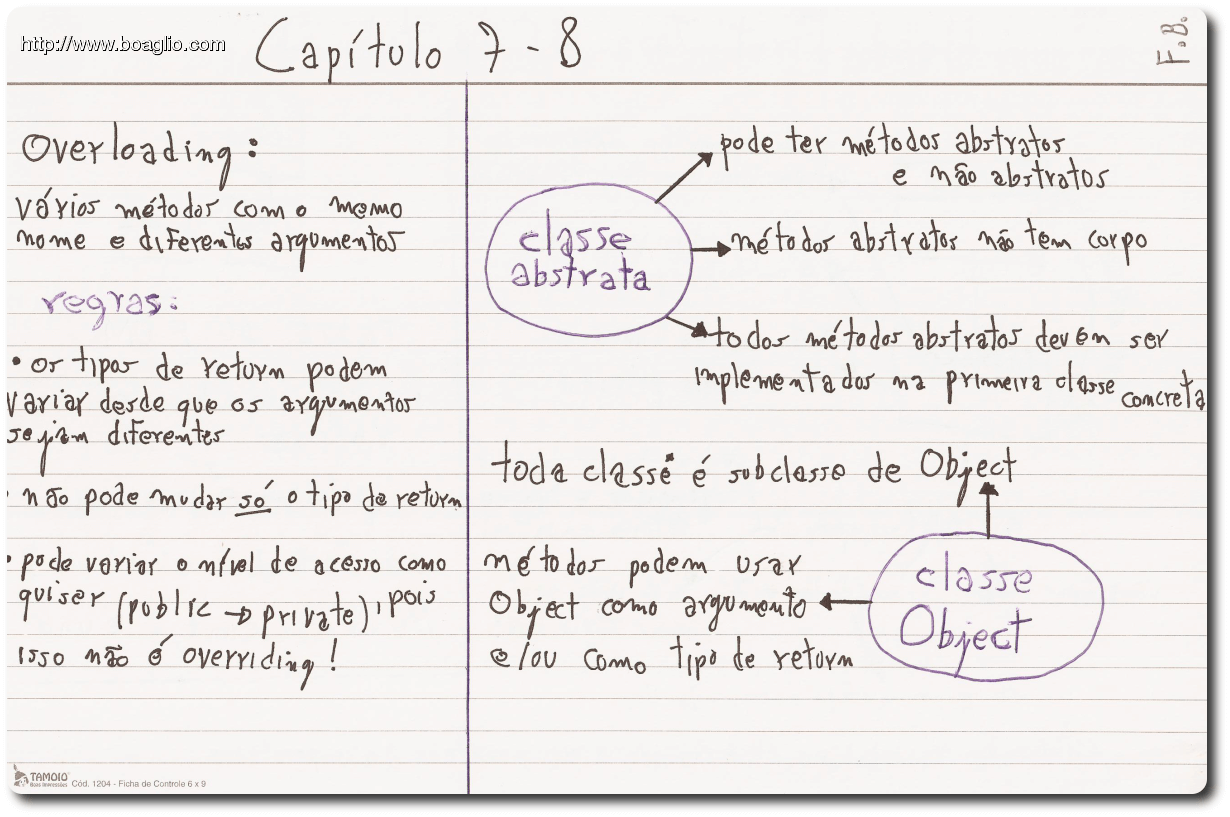 http://www.boaglio.com
Capítulo 7 - 8
F.B.
Overloading:
vários métodos com o mesmo
nome e diferentes argumentos
regras:
• os tipos de return podem
variar desde que os argumentos
sejam diferentes
• não pode mudar só o tipo de return
• pode variar o nível de acesso como
quiser (public → private), pois
isso não é overriding!
classe
abstrata
pode ter métodos abstratos
e não abstratos
métodos abstratos não tem corpo
todos métodos abstratos devem ser
implementados na primeira classe concreta
toda classe é subclasse de Object
métodos podem usar
Object como argumento
e/ou como tipo de return
classe
Object
TAMOIO
Boas Impressões
Cód. 1204 - Ficha de Controle 6 x 9